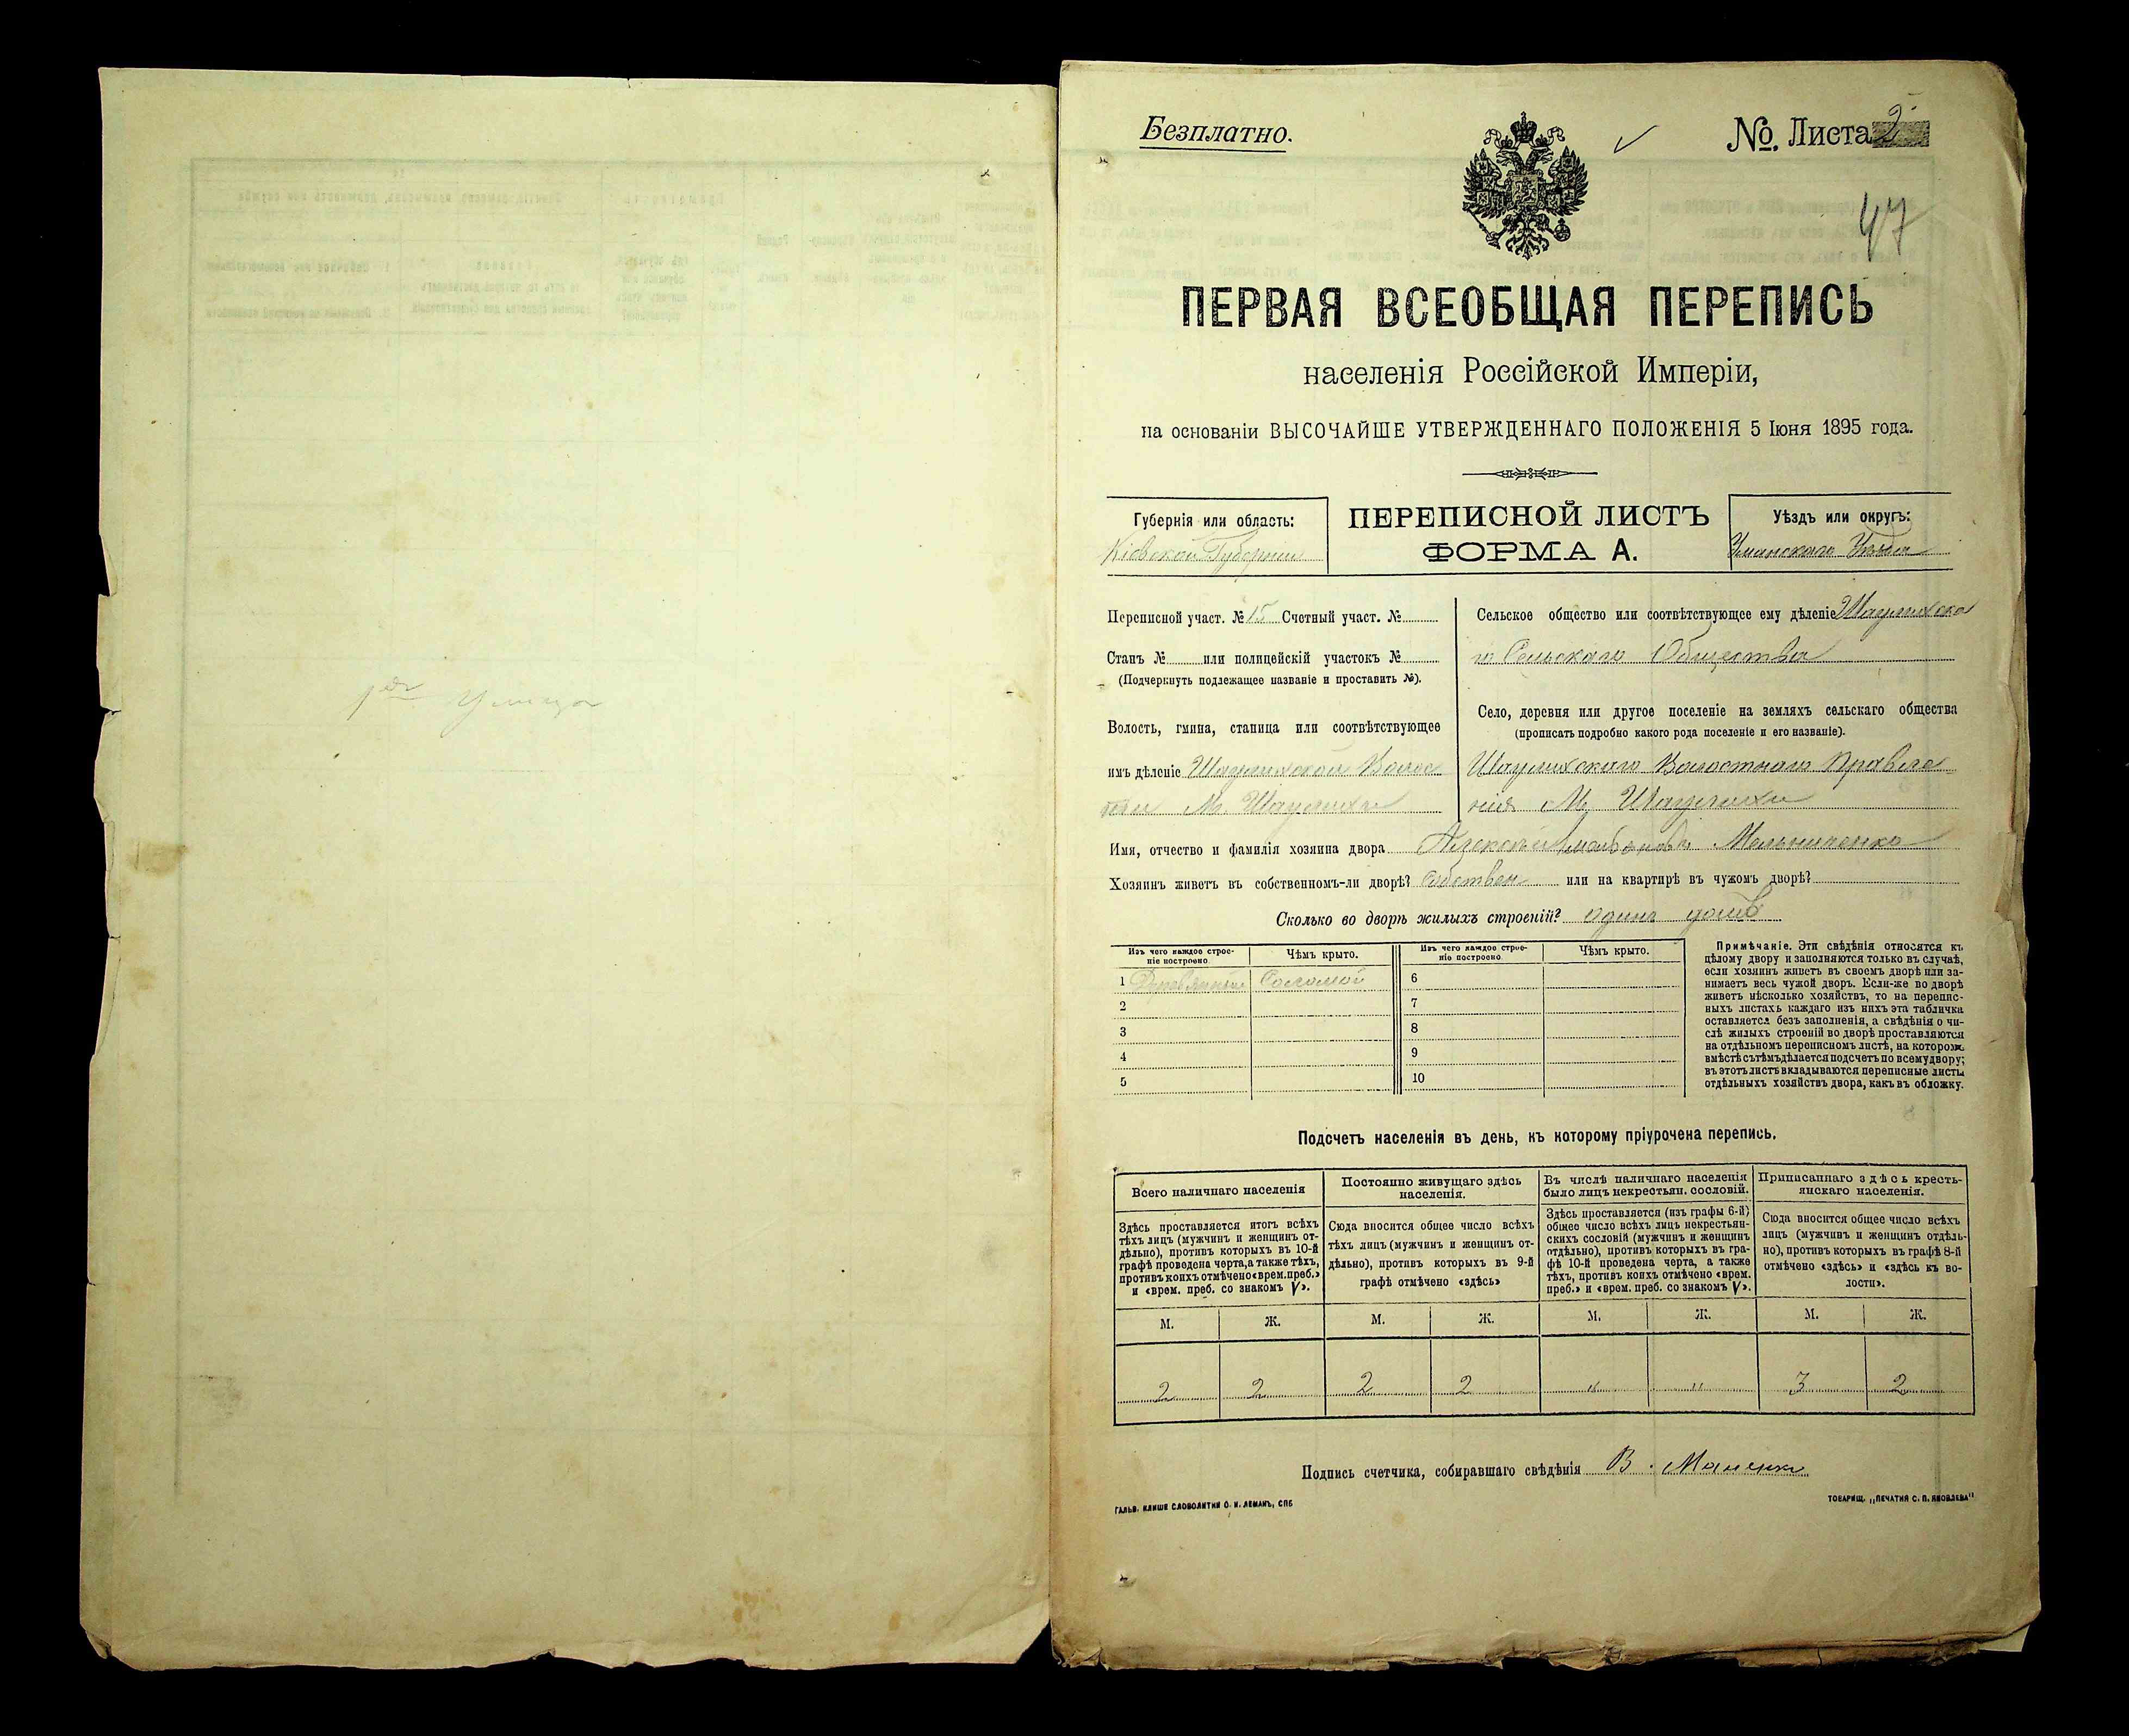 1ая улица
Безплатно.
№ Листа 2
47
ПЕРВАЯ ВСЕОБЩАЯ ПЕРЕПИСЬ
населенія Россійской Имперіи,
на основаніи ВЫСОЧАЙШЕ УТВЕРЖДЕННАГО ПОЛОЖЕНІЯ 5 Іюня 1895 года.
Губернія или область:
Кіевской Губерніи
ПЕРЕПИСНОЙ ЛИСТЪ
ФОРМА А.
Уѣздъ или округъ:
Уманскаго Уѣзда
Переписной участ. № 15 Счетный участ. №
Станъ № или полицейскій участокъ №
(Подчеркнуть подлежащее названіе и проставить №).
Волость, гмина, станица или соотвѣтствующее
имъ дѣленіе Шаулихской Волос
ти М. Шаулихи
Сельское общество или соотвѣтствующее ему дѣленіе Шаулихска
го Сельскаго Общества
Село, деревня или другое поселеніе на земляхъ сельскаго общества
(прописать подробно какого рода поселеніе и его названіе).
Шаулихскаго Волостнаго Правле
нія М. Шаулихи
Имя, отчество и фамилія хозяина двора Алексѣй Мельниченко
Хозяинъ живетъ въ собственномъ-ли дворѣ? Собствен или на квартирѣ въ чужомъ дворѣ?
Сколько во дворѣ жилыхъ строеній? одинъ домъ
Изъ чего каждое строе-
ніе построено
Чѣмъ крыто.
Изъ чего каждое строе-
ніе построено
Чѣмъ крыто.
1 Деревянный Соломой
2
3
4
5
6
7
8
9
10
Примѣчаніе. Эти свѣдѣнія относятся къ
цѣлому двору и заполняются только въ случаѣ,
если хозяинъ живетъ въ своемъ дворѣ или за-
нимаетъ весь чужой дворъ. Если-же во дворѣ
живетъ нѣсколько хозяйствъ, то на перепис-
ныхъ листахъ каждаго изъ нихъ эта табличка
оставляется безъ заполненія, а свѣдѣнія о чи-
слѣ жилыхъ строеній во дворѣ проставляются
на отдѣльномъ переписномъ листѣ, на которомъ
вмѣстѣ съ тѣмъ дѣлается подсчетъ по всему двору;
въ этотъ листъ вкладываются переписные листы
отдѣльныхъ хозяйствъ двора, какъ въ обложку.
Подсчетъ населенія въ день, къ которому пріурочена перепись.
Всего наличнаго населенія
Постоянно живущаго здѣсь
населенія.
Въ числѣ наличнаго населенія
было лицъ некрестьян. сословій.
Приписаннаго здѣсь кресть-
янскаго населенія.
Здѣсь проставляется итогъ всѣхъ
тѣхъ лицъ (мужчинъ и женщинъ от-
дѣльно), противъ которыхъ въ 10-й
графѣ проведена черта, а также тѣхъ,
противъ коихъ отмѣчено «врем. преб.»
и «врем. преб. со знакомъ V».
Сюда вносится общее число всѣхъ
тѣхъ лицъ (мужчинъ и женщинъ от-
дѣльно), противъ которыхъ въ 9-й
графѣ отмѣчено «здѣсь»
Здѣсь проставляется (изъ графы 6-й)
общее число всѣхъ лицъ некрестьян-
скихъ сословій (мужчинъ и женщинъ
отдѣльно), противъ которыхъ въ гра-
фѣ 10-й проведена черта, а также
тѣхъ, противъ коихъ отмѣчено «врем.
преб.» и «врем. преб. со знакомъ V».
Сюда вносится общее число всѣхъ
лицъ (мужчинъ и женщинъ отдѣль-
но), противъ которыхъ въ графѣ 8-й
отмѣчено «здѣсь» и «здѣсь къ во-
лости».
М. Ж. М. Ж. М. Ж. М. Ж.
2 2 2 2 " " 3 2
Подпись счетчика, собиравшаго свѣдѣнія В.
ГАЛЬВ. КЛИШЕ СЛОВОЛИТНИ О. И. ЛЕМАНЪ, СПБ
ТОВАРИЩ. „ПЕЧАТНЯ С. П. ЯКОВЛЕВА"